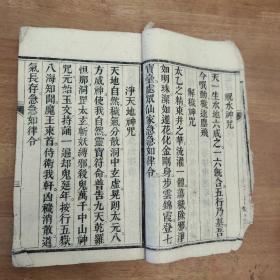 呪水神咒
天一生水地六成之一六既合五行乃基吾
今噀動穢逐塵飛
解穢神咒
太乙之精東井之華流灌一體蕩穢除邪淨
如明珠深如蓮花化金剛身步雲錦霞登七
寶臺處眾仙家急急如律令
淨天地神咒
天地自然穢氣分散洞中玄虛晃朗太元八
方威神使我自然靈寶符命普告九天乾羅
怛那洞罡太玄斬妖縛邪殺鬼萬千中山神
咒元始玉文持誦一遍却鬼延年按行五嶽
八海知聞魔王束首侍衛我軒凶穢消散道
氣長存急急如律令